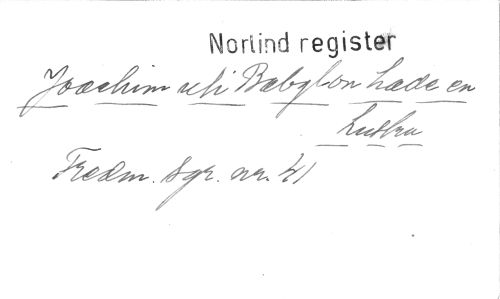 Norlind register
Joachim uti Babylon hade en
hustru
Fredm. sgr. nr. 41